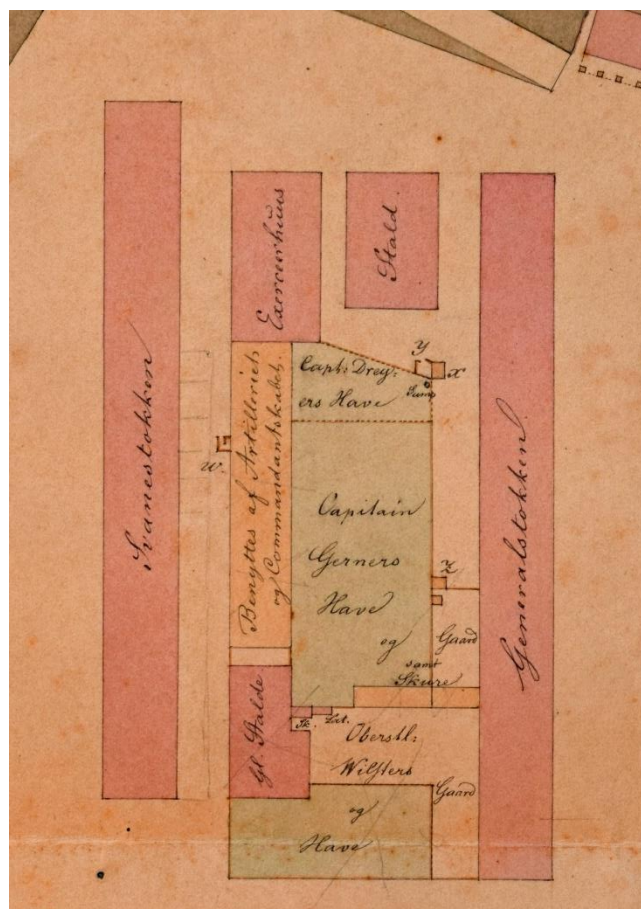 Svanestokken
Exerceerhuus
Stald.
Benyttes af Artilleriets
og Commandantskabet.
Capt: Drey:
ers Have
Y
X
Pump
W.
Capitain
Gerners
Have
og
Z
Gaard
samt
Skure
Generalstokken.
Gl. Stalde
Sk.
Lat.
Oberstl:
Wilsters
Gaard
og
Have